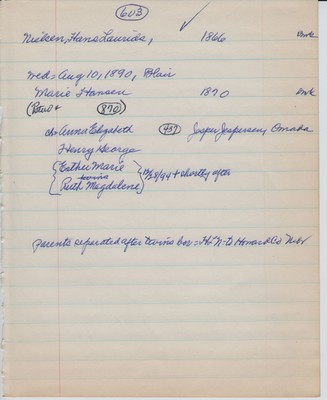 603
Nielsen, Hans Laurids, 1866 Dmk
Wed = Aug 10, 1890, Blair
Marie Hansen 1870 Dmk
870
ch = Anna Elizabeth 457 Jasper Jespersen, Omaha
Henry George
Esther Marie
twins
Ruth Magdalene shortly after
Parents separated after twins bor = H.N. to Howard Co Nebr